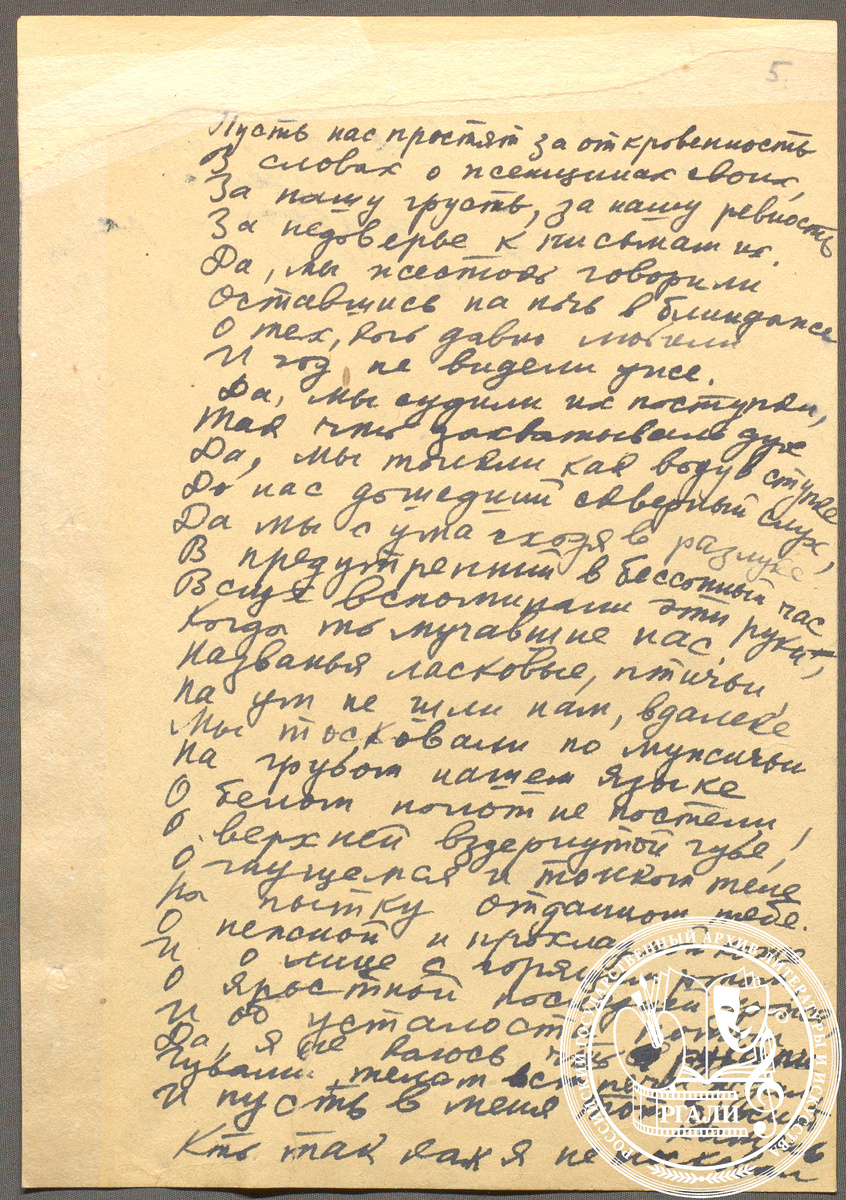 5.
Пусть нас простят за откровенность
В словах о женщинах своих,
За нашу грусть, за нашу ревность
За недоверье к письмам их.
Да, мы жестоко говорили
Оставшись на ночь в блиндаже
О тех, кого давно любили
И год не видели уже.
Да, мы судили их поступки,
Так что захватывало дух
Да, мы толкли как воду в ступке
До нас дошедший скверный слух,
Да мы с ума сходя в разлуке
В предутренний в бессонный час
Вслух вспоминали эти руки,
Когда то мучавшие нас.
Названья ласковые, птичьи,
На ум не шли нам, вдалеке
Мы тосковали по мужичьи
На грубом нашем языке
О белом полотне постели,
О верхней вздернутой губе,
О гнущемся и тонком теле
На пытку отданном тебе.
О нежной и прохладной коже
И о лице с горящим ртом
О яростной последней
И об усталости потом
Да, я не каюсь что
Губами телом встречи
И пусть в меня тот
Кто так как я не
РОССИЙСКИЙ ГОСУДАРСТВЕННЫЙ АРХИВ ЛИТЕРАТУРЫ И ИСКУССТВА
РГАЛИ